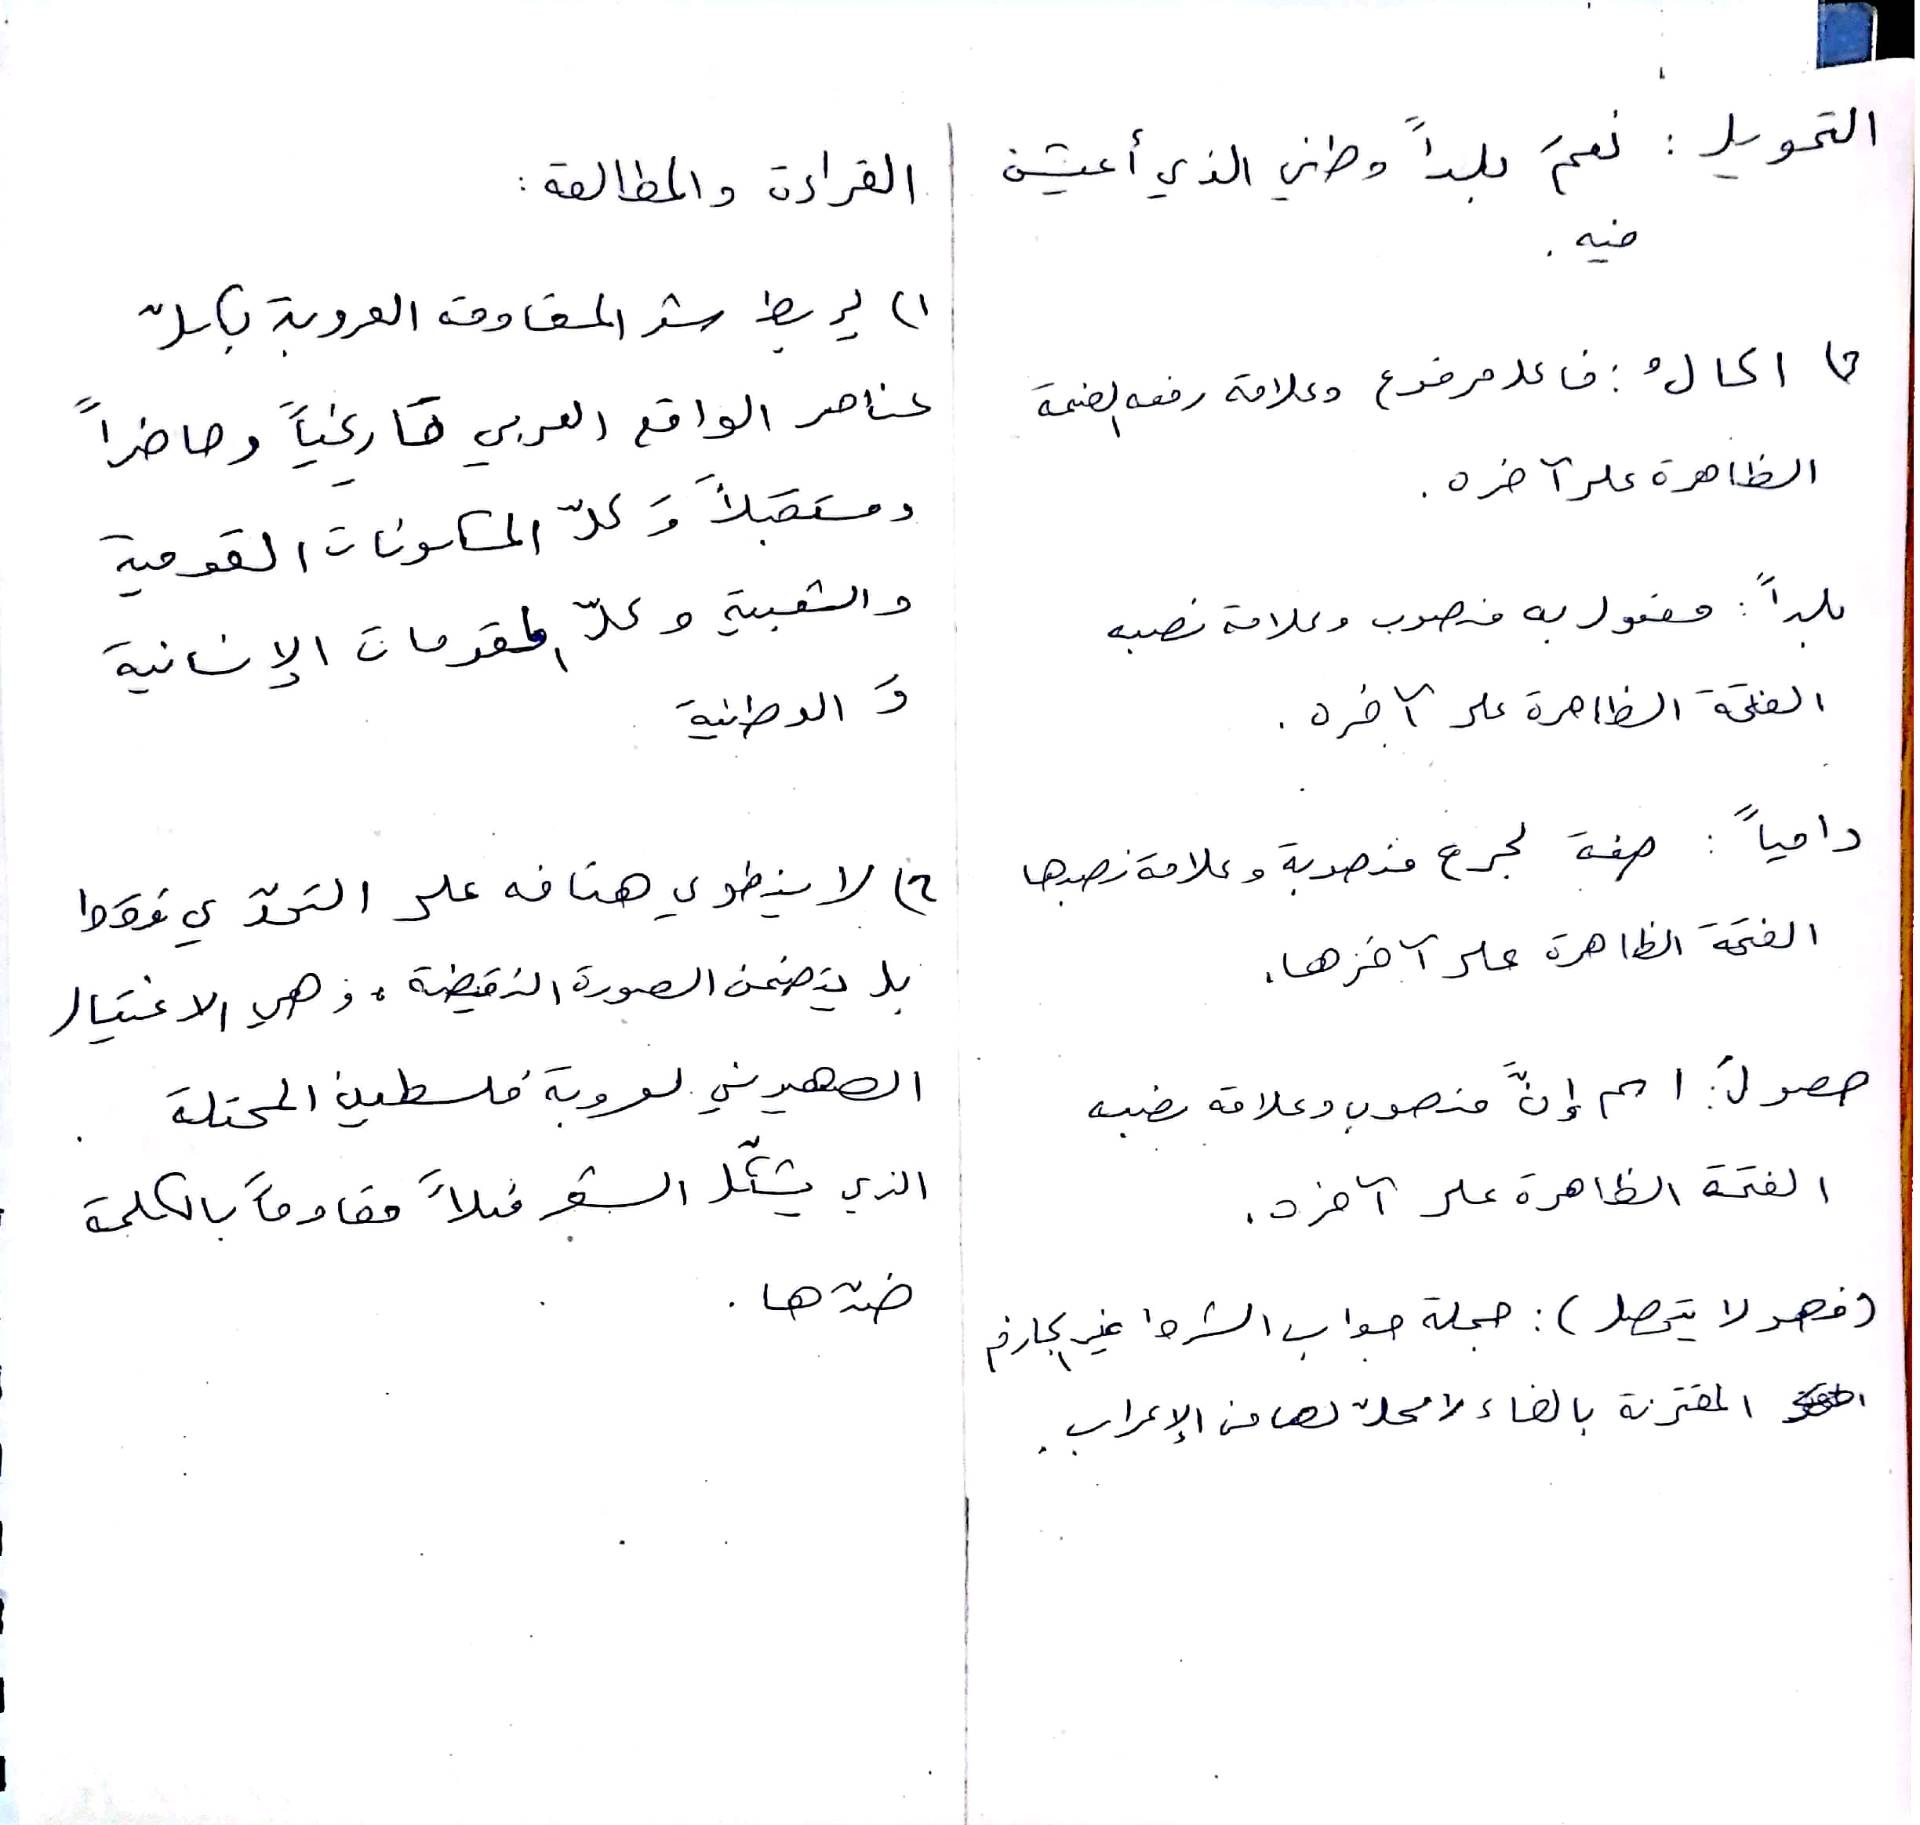 التحويل : نعمَ بلداً وطني الذي أعيش
فيه .
٢) الحالُ : فاعل مرفوع وعلامة رفعه الضمة
الظاهرة على آخره .
بلداً : مفعول به منصوب وعلامة نصبه
الفتحة الظاهرة على آخره .
دامياً : صفة لجرح منصوبة وعلامة نصبها
الفتحة الظاهرة على آخرها .
حصولَ : اسم إنَّ منصوب وعلامة نصبه
الفتحة الظاهرة على آخره .
(فهو لا يتحصل) : جملة جواب الشرط غير الجازم
المقترنة بالفاء لا محلّ لها من الإعراب .
القراءة والمطالعة :
١) يربط شعر المقاومة العروبة بكلّ
عناصر الواقع العربي تاريخياً وحاضراً
ومستقبلاً وَ كلّ المكونات القومية
والشعبية و كلّ المقومات الإنسانية
وَ الوطنية
٢) لا ينطوي هتافه على التحدّي فقط
بل يتضمن الصورة النقيضة ، وهي الاغتيال
الصهيوني لعروبة فلسطين المحتلة .
الذي يشكّل الشعر فعلاً مقاوماً بالكلمة
ضدّها .